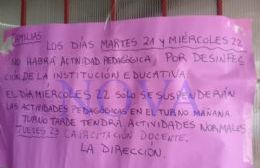 FAMILIAS
LOS DÍAS MARTES 21 Y MIÉRCOLES 22
NO HABRÁ ACTIVIDAD PEDAGÓGICA, POR DESINFEC
CIÓN DE LA INSTITUCIÓN EDUCATIVA.
EL DÍA MIÉRCOLES 22 SOLO SE SUSPENDERÁN
LAS ACTIVIDADES PEDAGÓGICAS EN EL TURNO MAÑANA
TURNO TARDE TENDRÁ ACTIVIDADES NORMALES
JUEVES 23 CAPACITACIÓN DOCENTE.
LA DIRECCIÓN.